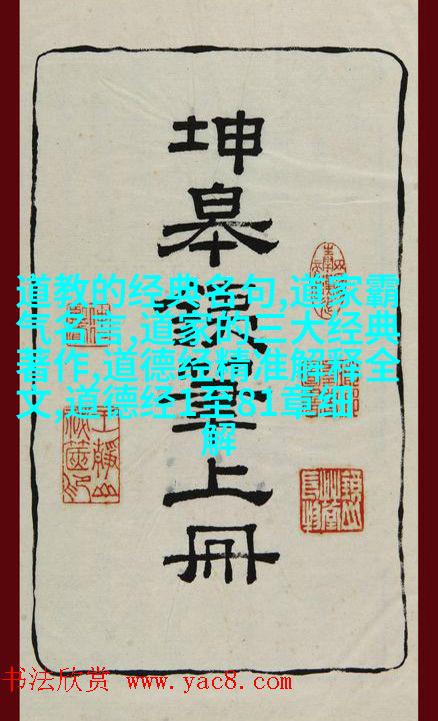 坤皋鐵筆上冊
道教的经典名句,道家霸
气名言,道家的三大经典
著作,道德经精准解释全
文,道德经1至81章细
解
书法欣赏 www.yac8.com